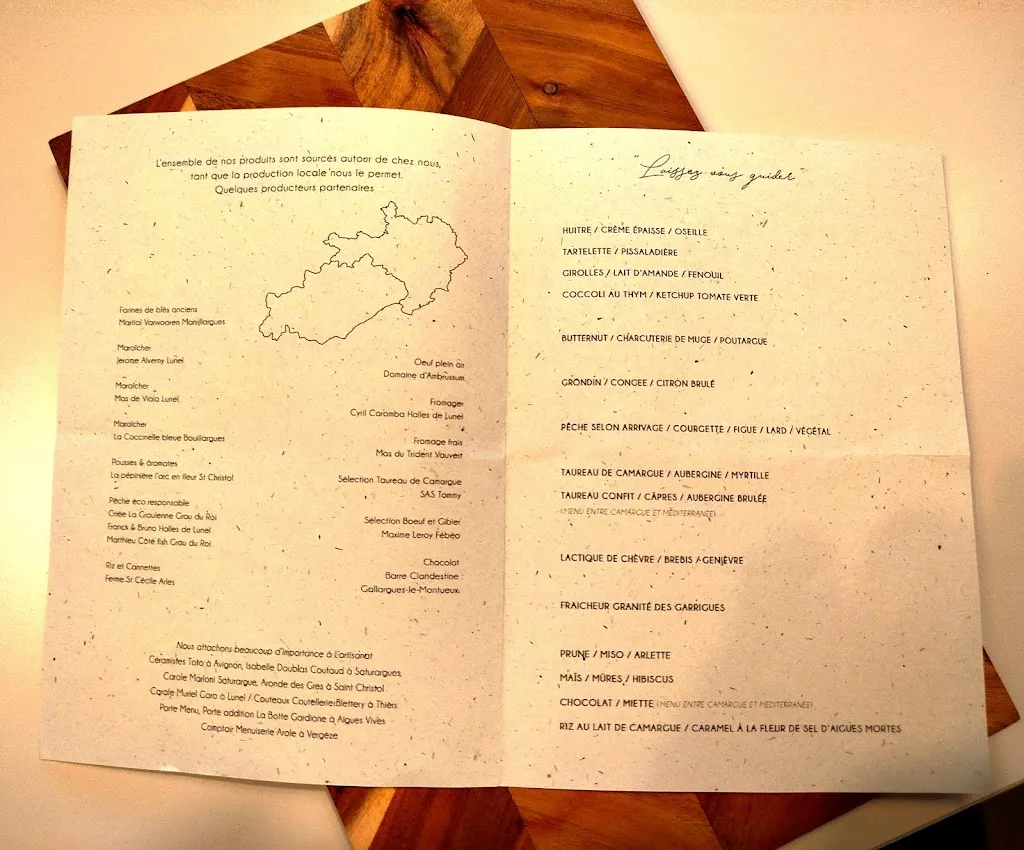 L'ensemble de nos produits sont sourcés autour de chez nous,
tant que la production locale nous le permet.
Quelques producteurs partenaires
Farines de blés anciens
Martial Vanvooren Marsillargues
Maraîcher
Jerome Alverny Lunel
Maraîcher
Mas de Viala Lunel
Maraîcher
La Coccinelle bleue Bouillargues
Pousses & aromates
La pépinière l'arc en fleur St Christol
Pêche éco responsable
Criée La Graulenne Grau du Roi
Franck & Bruno Halles de Lunel
Matthieu Côté fish Grau du Roi
Riz et Cannettes
Ferme St Cécile Arles
Oeuf plein air
Domaine d'Ambrussum
Fromager
Cyril Caramba Halles de Lunel
Fromage frais
Mas du Trident Vauvert
Sélection Taureau de Camargue
SAS Tommy
Sélection Boeuf et Gibier
Maxime Leroy Fébéo
Chocolat
Barre Clandestine
Gallargues-le-Montueux
Nous attachons beaucoup d'importance à L'artisanat
Céramistes Toto à Avignon, Isabelle Doublas Coutaud à Saturargues,
Carole Marloni Saturargue, Aronde des Gres à Saint Christol
Carole Muriel Gara à Lunel / Couteaux Coutellerie Blettery à Thièrs
Porte Menu, Porte addition La Botte Gardiane à Aigues Vives
Comptoir Menuiserie Arole à Vergèze
"Laissez vous guider"
HUITRE / CRÈME ÉPAISSE / OSEILLE
TARTELETTE / PISSALADIÈRE
GIROLLES / LAIT D'AMANDE / FENOUIL
COCCOLI AU THYM / KETCHUP TOMATE VERTE
BUTTERNUT / CHARCUTERIE DE MUGE / POUTARGUE
GRONDIN / CONGEE / CITRON BRULÉ
PÊCHE SELON ARRIVAGE / COURGETTE / FIGUE / LARD / VÉGÉTAL
TAUREAU DE CAMARGUE / AUBERGINE / MYRTILLE
TAUREAU CONFIT / CÂPRES / AUBERGINE BRULÉE
(MENU ENTRE CAMARGUE ET MÉDITERRANÉE)
LACTIQUE DE CHÈVRE / BREBIS / GENIÈVRE
FRAICHEUR GRANITÉ DES GARRIGUES
PRUNE / MISO / ARLETTE
MAÏS / MÛRES / HIBISCUS
CHOCOLAT / MIETTE (MENU ENTRE CAMARGUE ET MÉDITERRANÉE)
RIZ AU LAIT DE CAMARGUE / CARAMEL À LA FLEUR DE SEL D'AIGUES MORTES